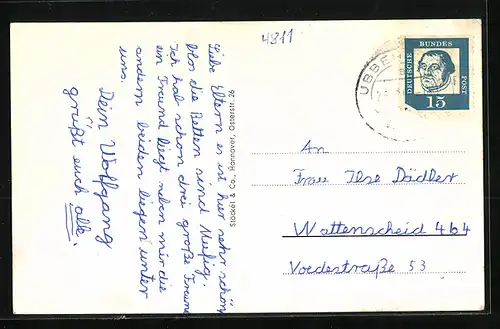 4911
Liebe Eltern es ist hier sehr schön
blos die Betten sind Mufig.
Ich hab schon drei große Freunde
ein Freund liegt neben mir die
andern beiden liegen unter
uns.
Dein Wolfgang
grüßt euch alle.
Stöckel & Co., Hannover, Osterstr. 26
DEUTSCHE BUNDES POST
15
An
Frau Ilse Dädler
Wattenscheid 464
Voedestraße 53